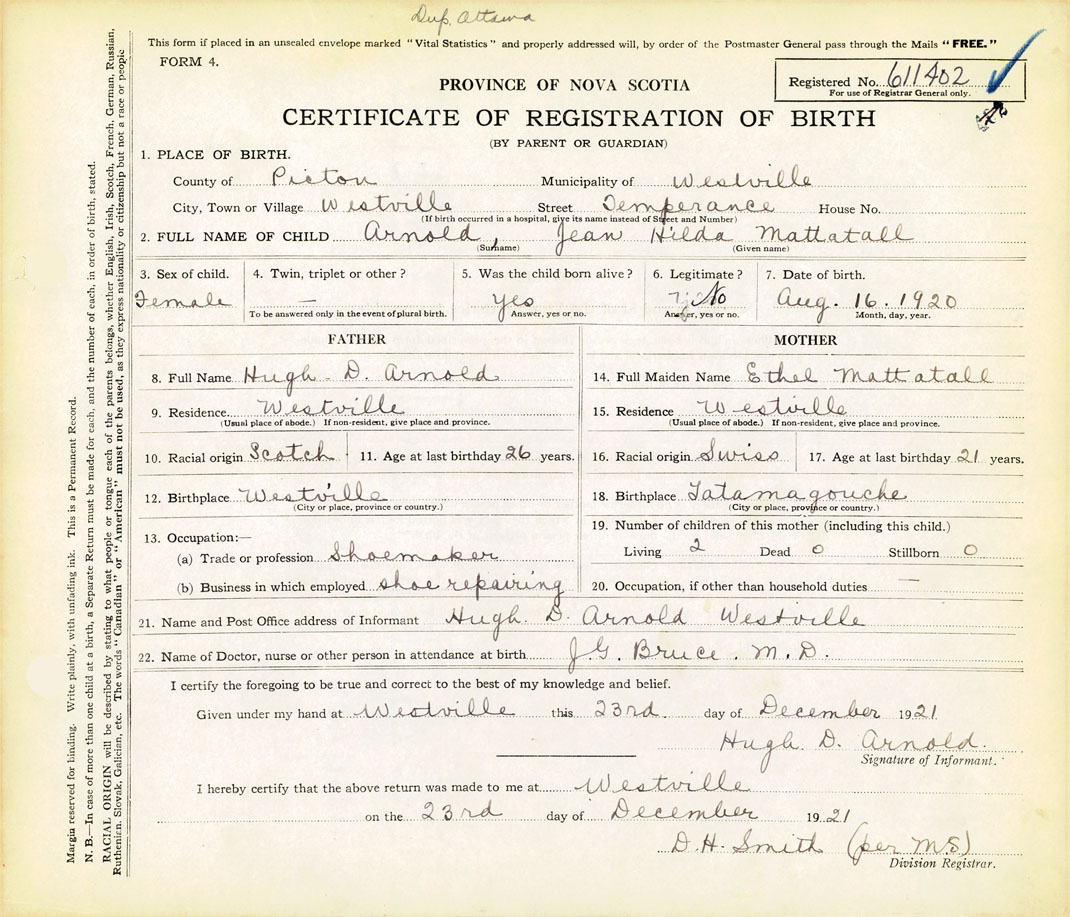 Dup. Ottawa
This form if placed in an unsealed envelope marked "Vital Statistics" and properly addressed will, by order of the Postmaster General pass through the Mails "FREE."
FORM 4.
Registered No. 611402
For use of Registrar General only.
PROVINCE OF NOVA SCOTIA
CERTIFICATE OF REGISTRATION OF BIRTH
(BY PARENT OR GUARDIAN)
1. PLACE OF BIRTH.
County of Pictou Municipality of Westville
City, Town or Village Westville Street Temperance House No.
(If birth occurred in a hospital, give its name instead of Street and Number)
2. FULL NAME OF CHILD Arnold, Jean Hilda Mattatall
(Surname) (Given name)
3. Sex of child. 4. Twin, triplet or other? 5. Was the child born alive? 6. Legitimate? 7. Date of birth.
Female — yes No Aug. 16. 1920
To be answered only in the event of plural birth. Answer, yes or no. Answer, yes or no. Month, day, year.
FATHER
8. Full Name Hugh D. Arnold
9. Residence. Westville
(Usual place of abode.) If non-resident, give place and province.
10. Racial origin Scotch 11. Age at last birthday 26 years.
12. Birthplace Westville
(City or place, province or country.)
13. Occupation:—
(a) Trade or profession Shoemaker
(b) Business in which employed shoe repairing
MOTHER
14. Full Maiden Name Ethel Mattatall
15. Residence Westville
(Usual place of abode.) If non-resident, give place and province.
16. Racial origin Swiss 17. Age at last birthday 21 years.
18. Birthplace Tatamagouche
(City or place, province or country.)
19. Number of children of this mother (including this child.)
Living 2 Dead 0 Stillborn 0
20. Occupation, if other than household duties —
21. Name and Post Office address of Informant Hugh D. Arnold Westville
22. Name of Doctor, nurse or other person in attendance at birth J.G. Bruce. M.D.
I certify the foregoing to be true and correct to the best of my knowledge and belief.
Given under my hand at Westville this 23rd. day of December 1921
Hugh D. Arnold.
Signature of Informant.
I hereby certify that the above return was made to me at Westville
on the 23rd day of December 1921
D.H. Smith (per M.S)
Division Registrar.
Margin reserved for binding. Write plainly, with unfading ink. This is a Permanent Record.
N. B.—In case of more than one child at a birth, a Separate Return must be made for each, and the number of each, in order of birth, stated.
RACIAL ORIGIN will be described by stating to what people or tongue each of the parents belongs, whether English, Irish, Scotch, French, German, Russian,
Ruthenian, Slovak, Galician, etc. The words "Canadian" or "American" must not be used, as they express nationality or citizenship but not a race or people